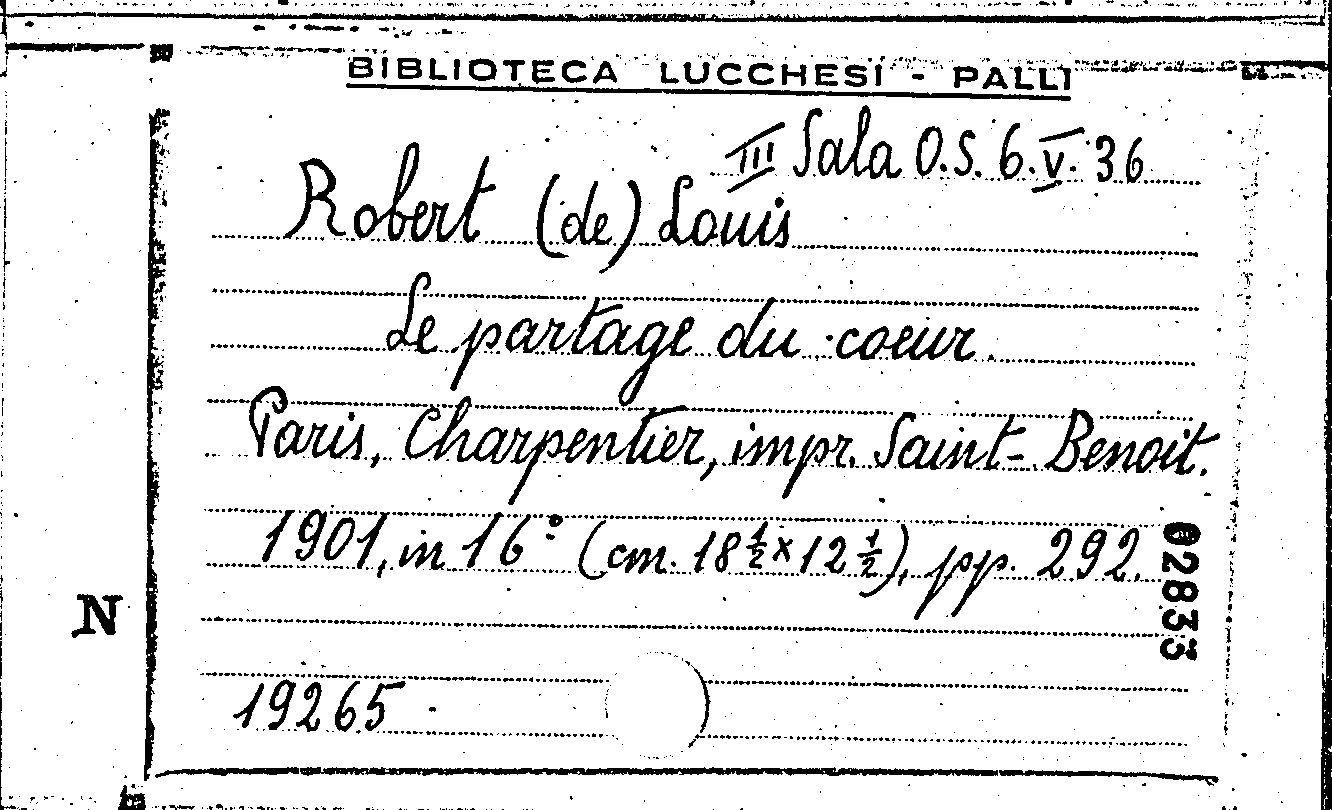 BIBLIOTECA LUCCHESI - PALLI
III Sala O.S. 6.V. 36
Robert (de) Louis
Le partage du coeur.
Paris, Charpentier, impr. Saint-Benoit.
1901, in 16° (cm. 18 ½ x 12 ½), pp. 292.
02833
N
19265.